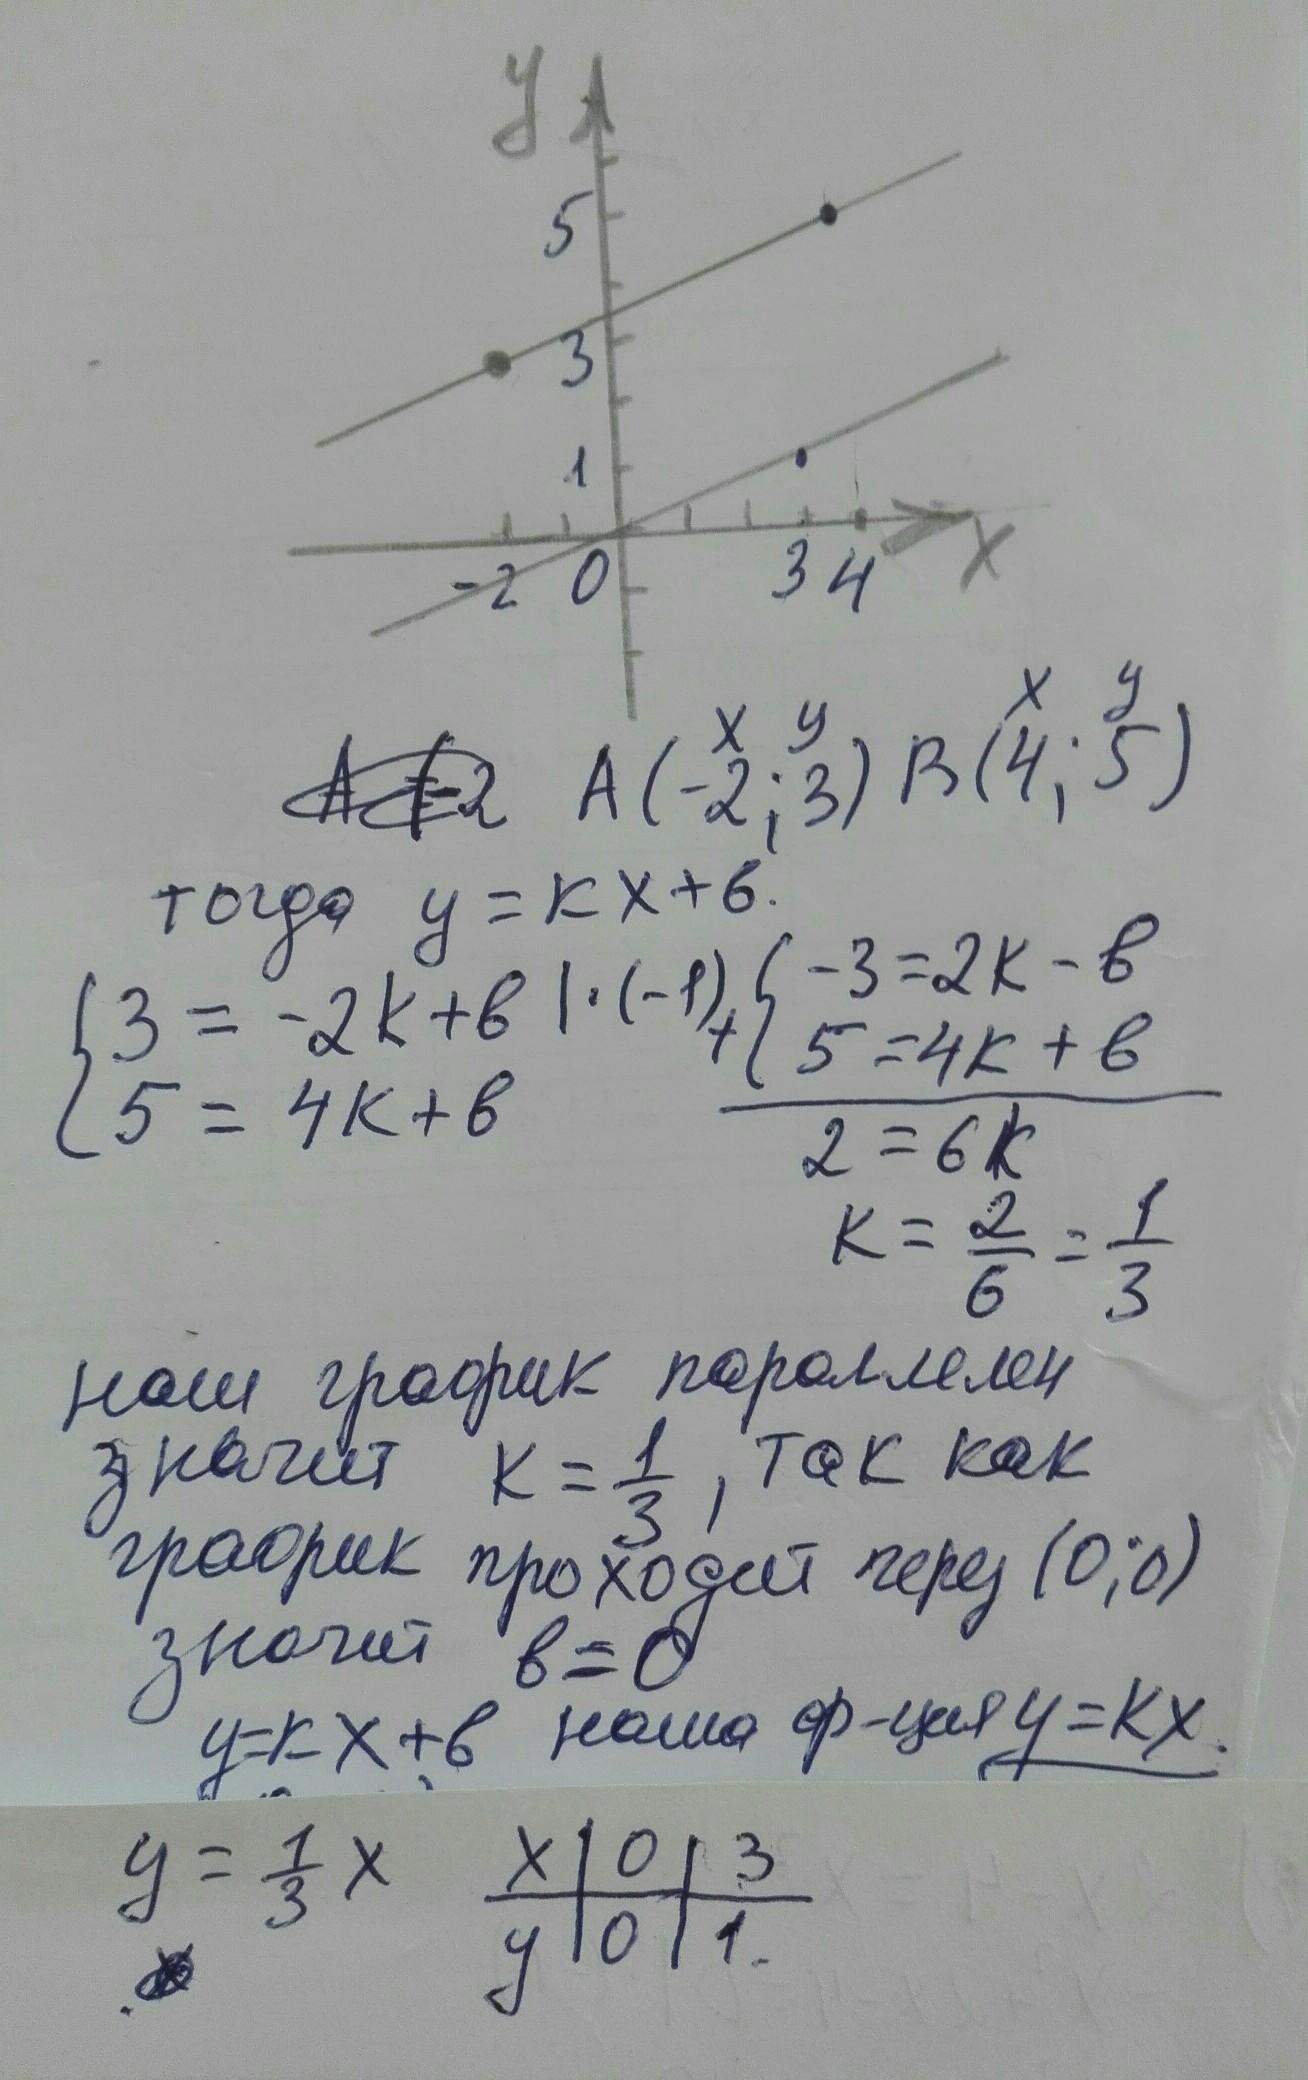 y
5
3
1
-2 0 3 4 x
x y x y
A(-2;3) B(4;5)
тогда y=кx+в.
{3 = -2к+в |·(-1) + {-3=2к-в
{5 = 4к+в {5=4к+в
2=6к
к=2/6=1/3
наш график параллелен
значит к=1/3, так как
график проходит через (0;0)
значит в=0
y=кx+в наша ф-ция y=кx.
y=1/3 x
x | 0 | 3
y | 0 | 1.